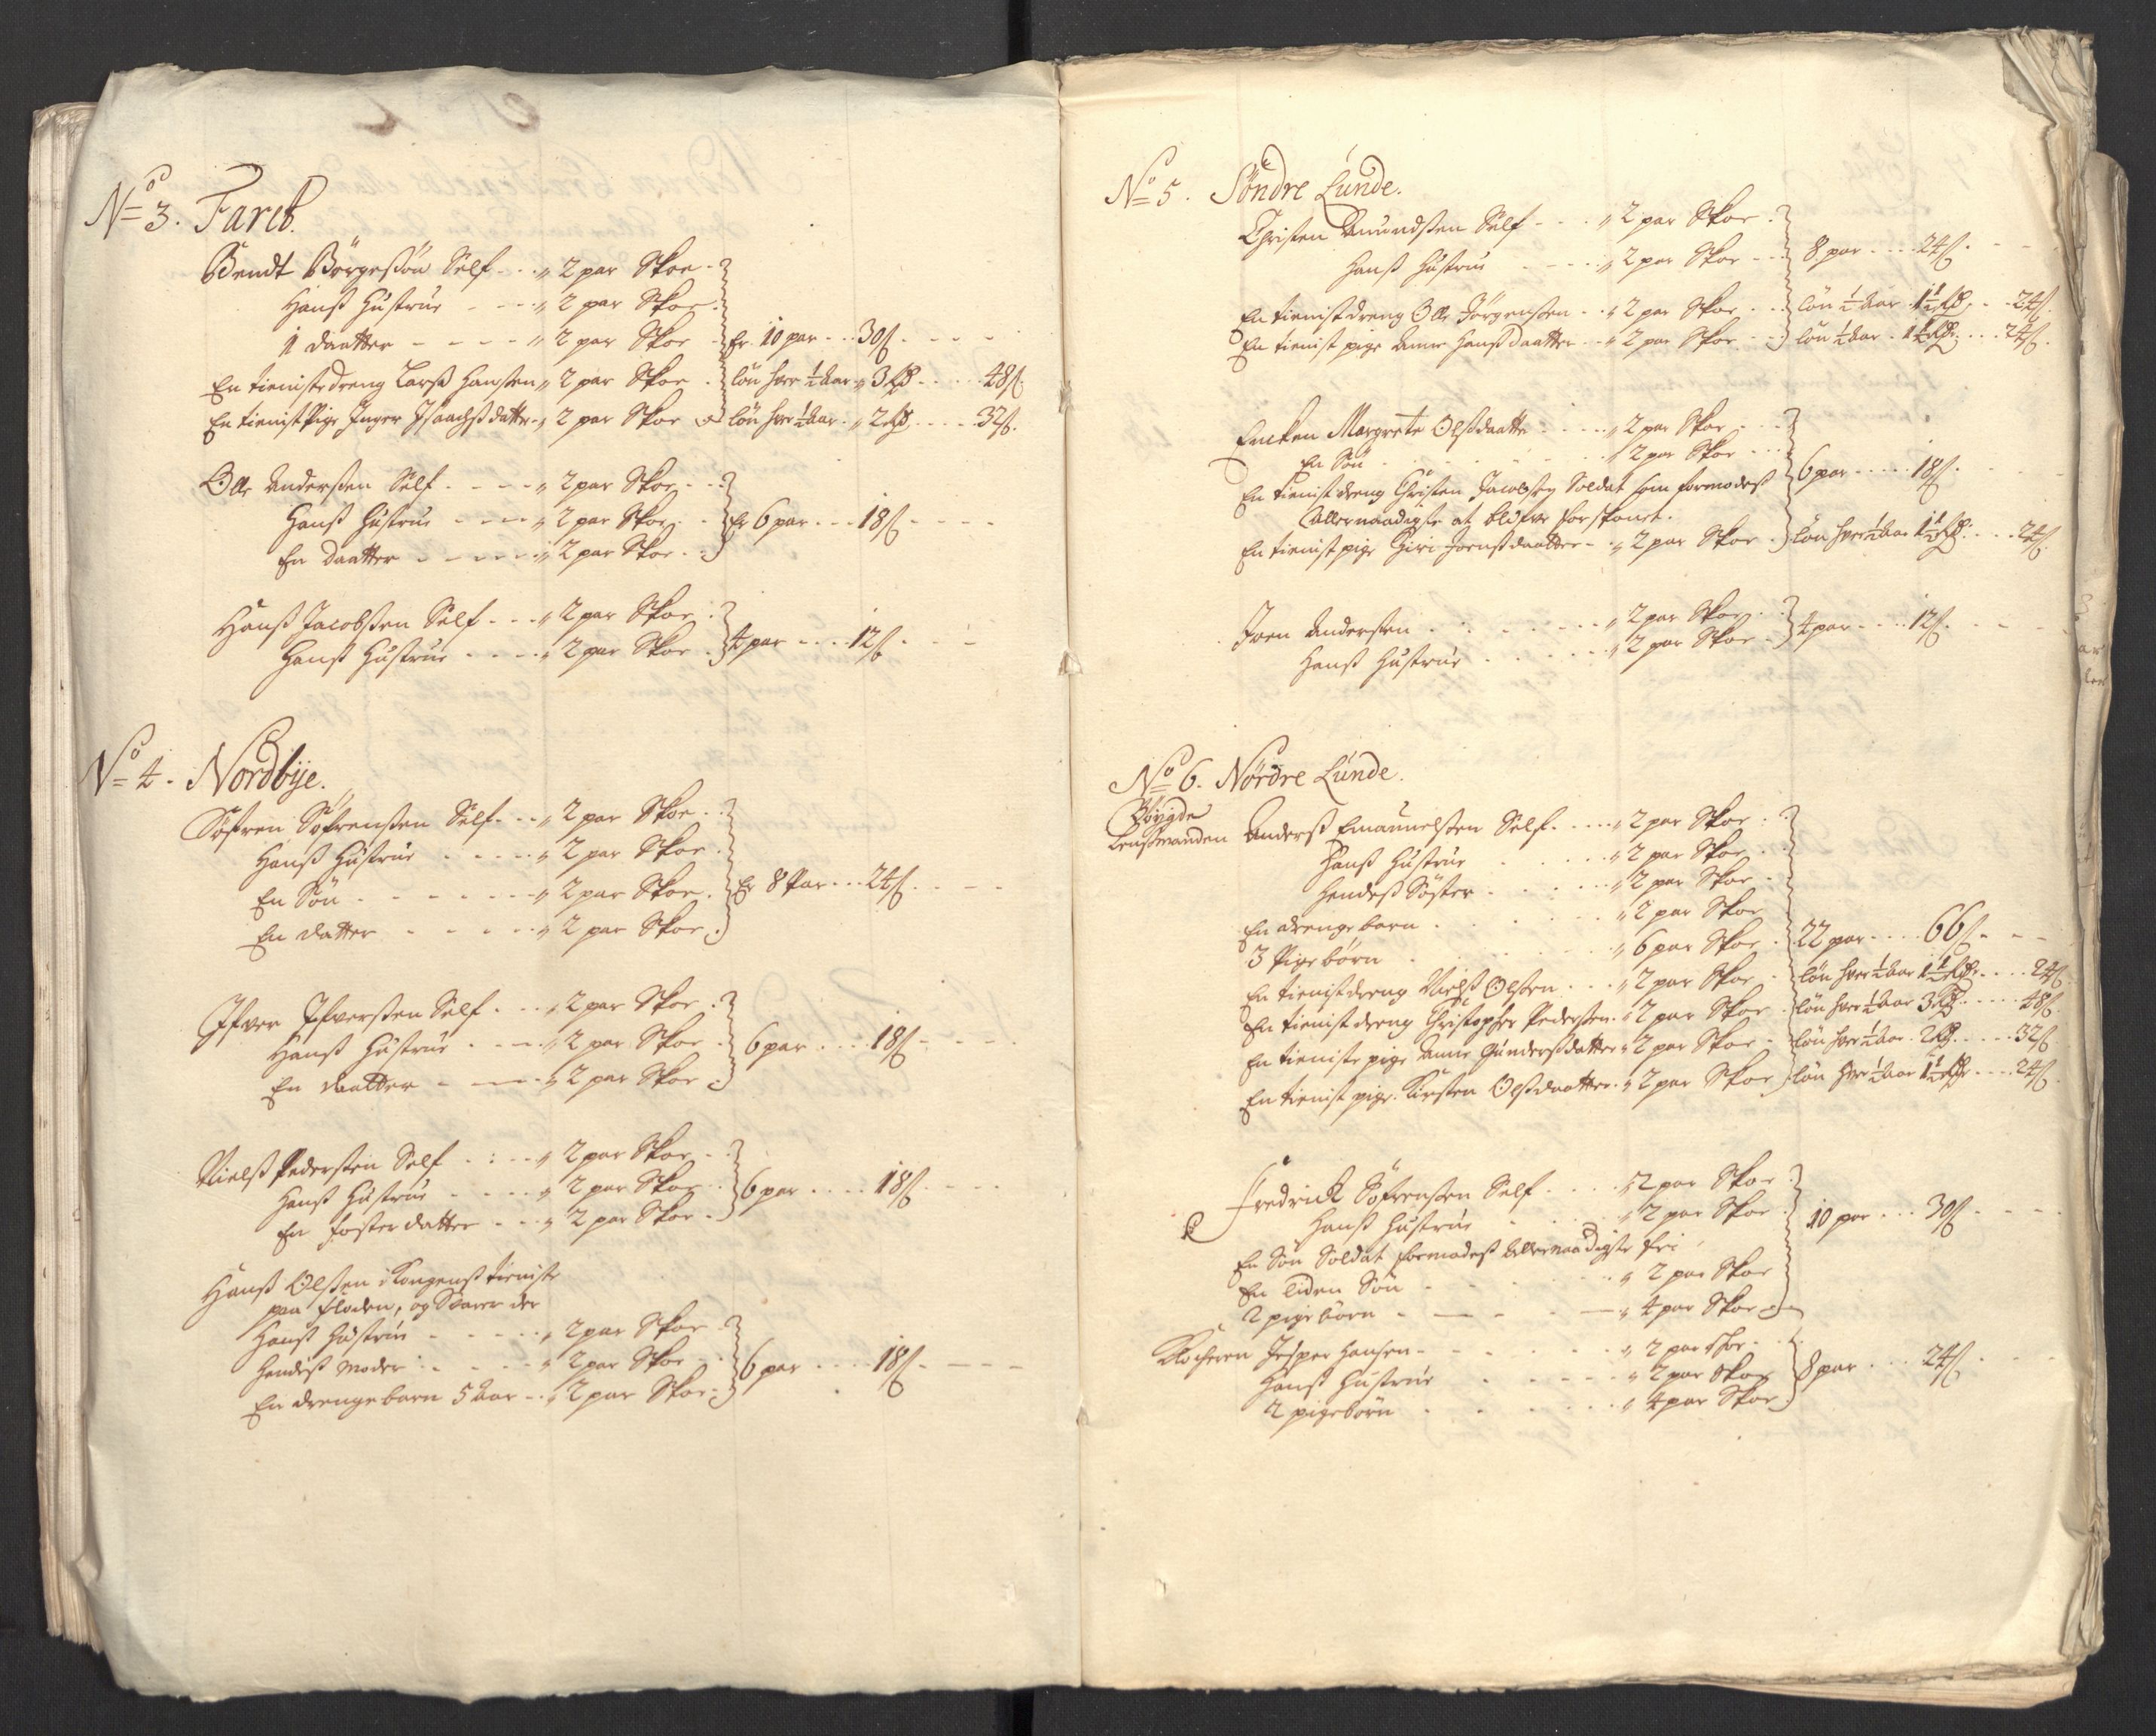 No 3. Fareb.
Bendt Börgessön Self - - „ 2 par Skoe -
Hanß Hüstrue - - - „ 2 par Skoe
1 daatter - - - - „ 2 par Skoe - Er 10 par - - 30ß - - - -
En tieniste dreng Larß Hanßen „ 2 par Skoe . lön hver ½ Aar „ 3 Rd - - - - 48ß.
En tienist Pige Inger Isaachß datter „ 2 par Skoe lön hver ½ Aar . „ 2 Rd - - - - 32ß.
Olle Anderßen Self - - - - „ 2 par Skoe - -
Hanß Hüstrue - - - - „ 2 par Skoe - - Er 6 par - - - 18ß - - - -
En daatter - - - - - „ 2 par Skoe - -
Hanß Jacobßen Self - - - „ 2 par Skoe .
Hanß Hüstrue - - - - „ 2 par Skoe . 4 par - - - - 12ß - - -
No 4. Nordbÿe.
Söfren Söfrenßen Self - - „ 2 par Skoe - .
Hanß Hüstrue - - - - - „ 2 par Skoe .
En Sön - - - - - - - „ 2 par Skoe . Er 8 Par - - - 24ß - - - -
En datter - - - - - „ 2 par Skoe .
Ifver Ifverßen Self - - - „ 2 par Skoe .
Hanß Hüstrue - - - - „ 2 par Skoe . 6 par - - - 18ß - - - -
En daatter - - - - „ 2 par Skoe
Nielß Pederßen Self - : - - „ 2 par Skoe - .
Hanß Hüstrue - - - - „ 2 par Skoe . 6 par - - - - 18ß - - - -
En foster datter - - - „ 2 par Skoe -
Hanß Olßen i Kongenß tieniste
paa Floden, og Svarer der
Hanß Hüstrue - - - - - „ 2 par Skoe -
Hendiß Moder : - - - - „ 2 par Skoe - . 6 par - - - - 18ß - - - -
En drenge barn 5 Aar - - „ 2 par Skoe -
No 5. Söndre Lunde.
Christen Amundßen Self - - - „ 2 par Skoe .
Hanß Hüstrue - - - - „ 2 par Skoe - - 8. par - - - - 24ß. - - -
En tienist dreng Olle Jörgenßen - - „ 2 par Skoe - - lön ½ Aar . 1½ Rd - - - 24ß.
En tienist pige Anne Hanß daatter - - „ 2 par Skoe - - lön ½ Aar . 1½ Rd - - - 24ß.
Encken Margrete Olßdaatter - - - - „ 2 par Skoe - - -
En Sön - - - - - - - „ 2 par Skoe - - -
En tienist dreng Christen Jacobßen Soldat som formodeß 6 par - - - - - 18ß - - - -
Allernaadigste at blifve forskonet.
En tienist pige Giri Joenß daatter - - „ 2 par Skoe - lön hver ½ Aar 1½ Rd - - - 24ß.
Joen Anderßen - - - - - - - „ 2 par Skoe - .
Hanß Hüstrue - - - - - - „ 2 par Skoe - 4 par - - - - 12ß - - - -
No 6. Nördre Lunde.
Böÿgde
Lenßmanden Anderß Emanuelßen Self - - - - „ 2 par Skoe - .
Hanß Hüstrue - - - - - „ 2 par Skoe - .
Hendeß Söster - - - - - - „ 2 par Skoe -
En drenge barn - - - - - - „ 2 par Skoe
3 Pige börn - - - - - - - „ 6 par Skoe . 22 par - - - - 66ß - - -
En tienist dreng Nielß Olßen - - - „ 2 par Skoe - lön hver ½ Aar 1½ Rd - - - 24ß
En tienist dreng Christopher Pederßen - „ 2 par Skoe . lön hver ½ Aar 3 Rd - - - - 48ß
En tieniste pige Anne Gunderßdatter „ 2 par Skoe - lön hver ½ Aar . 2 Rd - - - - 32ß
En tienist pige Kirsten Olßdaatter - „ 2 par Skoe lön hver ½ Aar 1½ Rd - - - 24ß
Fredrick Söfrenßen Self - - - - „ 2 par Skoe .
Hanß Hüstrue - - - - „ 2 par Skoe . 10 par - - - 30ß - - - -
En Sön Soldat formodeß Allernaadigste fri
En liden Sön - - - - - - - „ 2 par Skoe
2 pige börn - - - - - „ 4 par Skoe
Klocheren Jesper Hansen - - - - - - - „ 2 par Skoe .
Hanß Hüstrue - - - - - „ 2 par Skoe 8 par - - - 24ß - - -
2 pigebörn - - - - - - „ 4 par Skoe